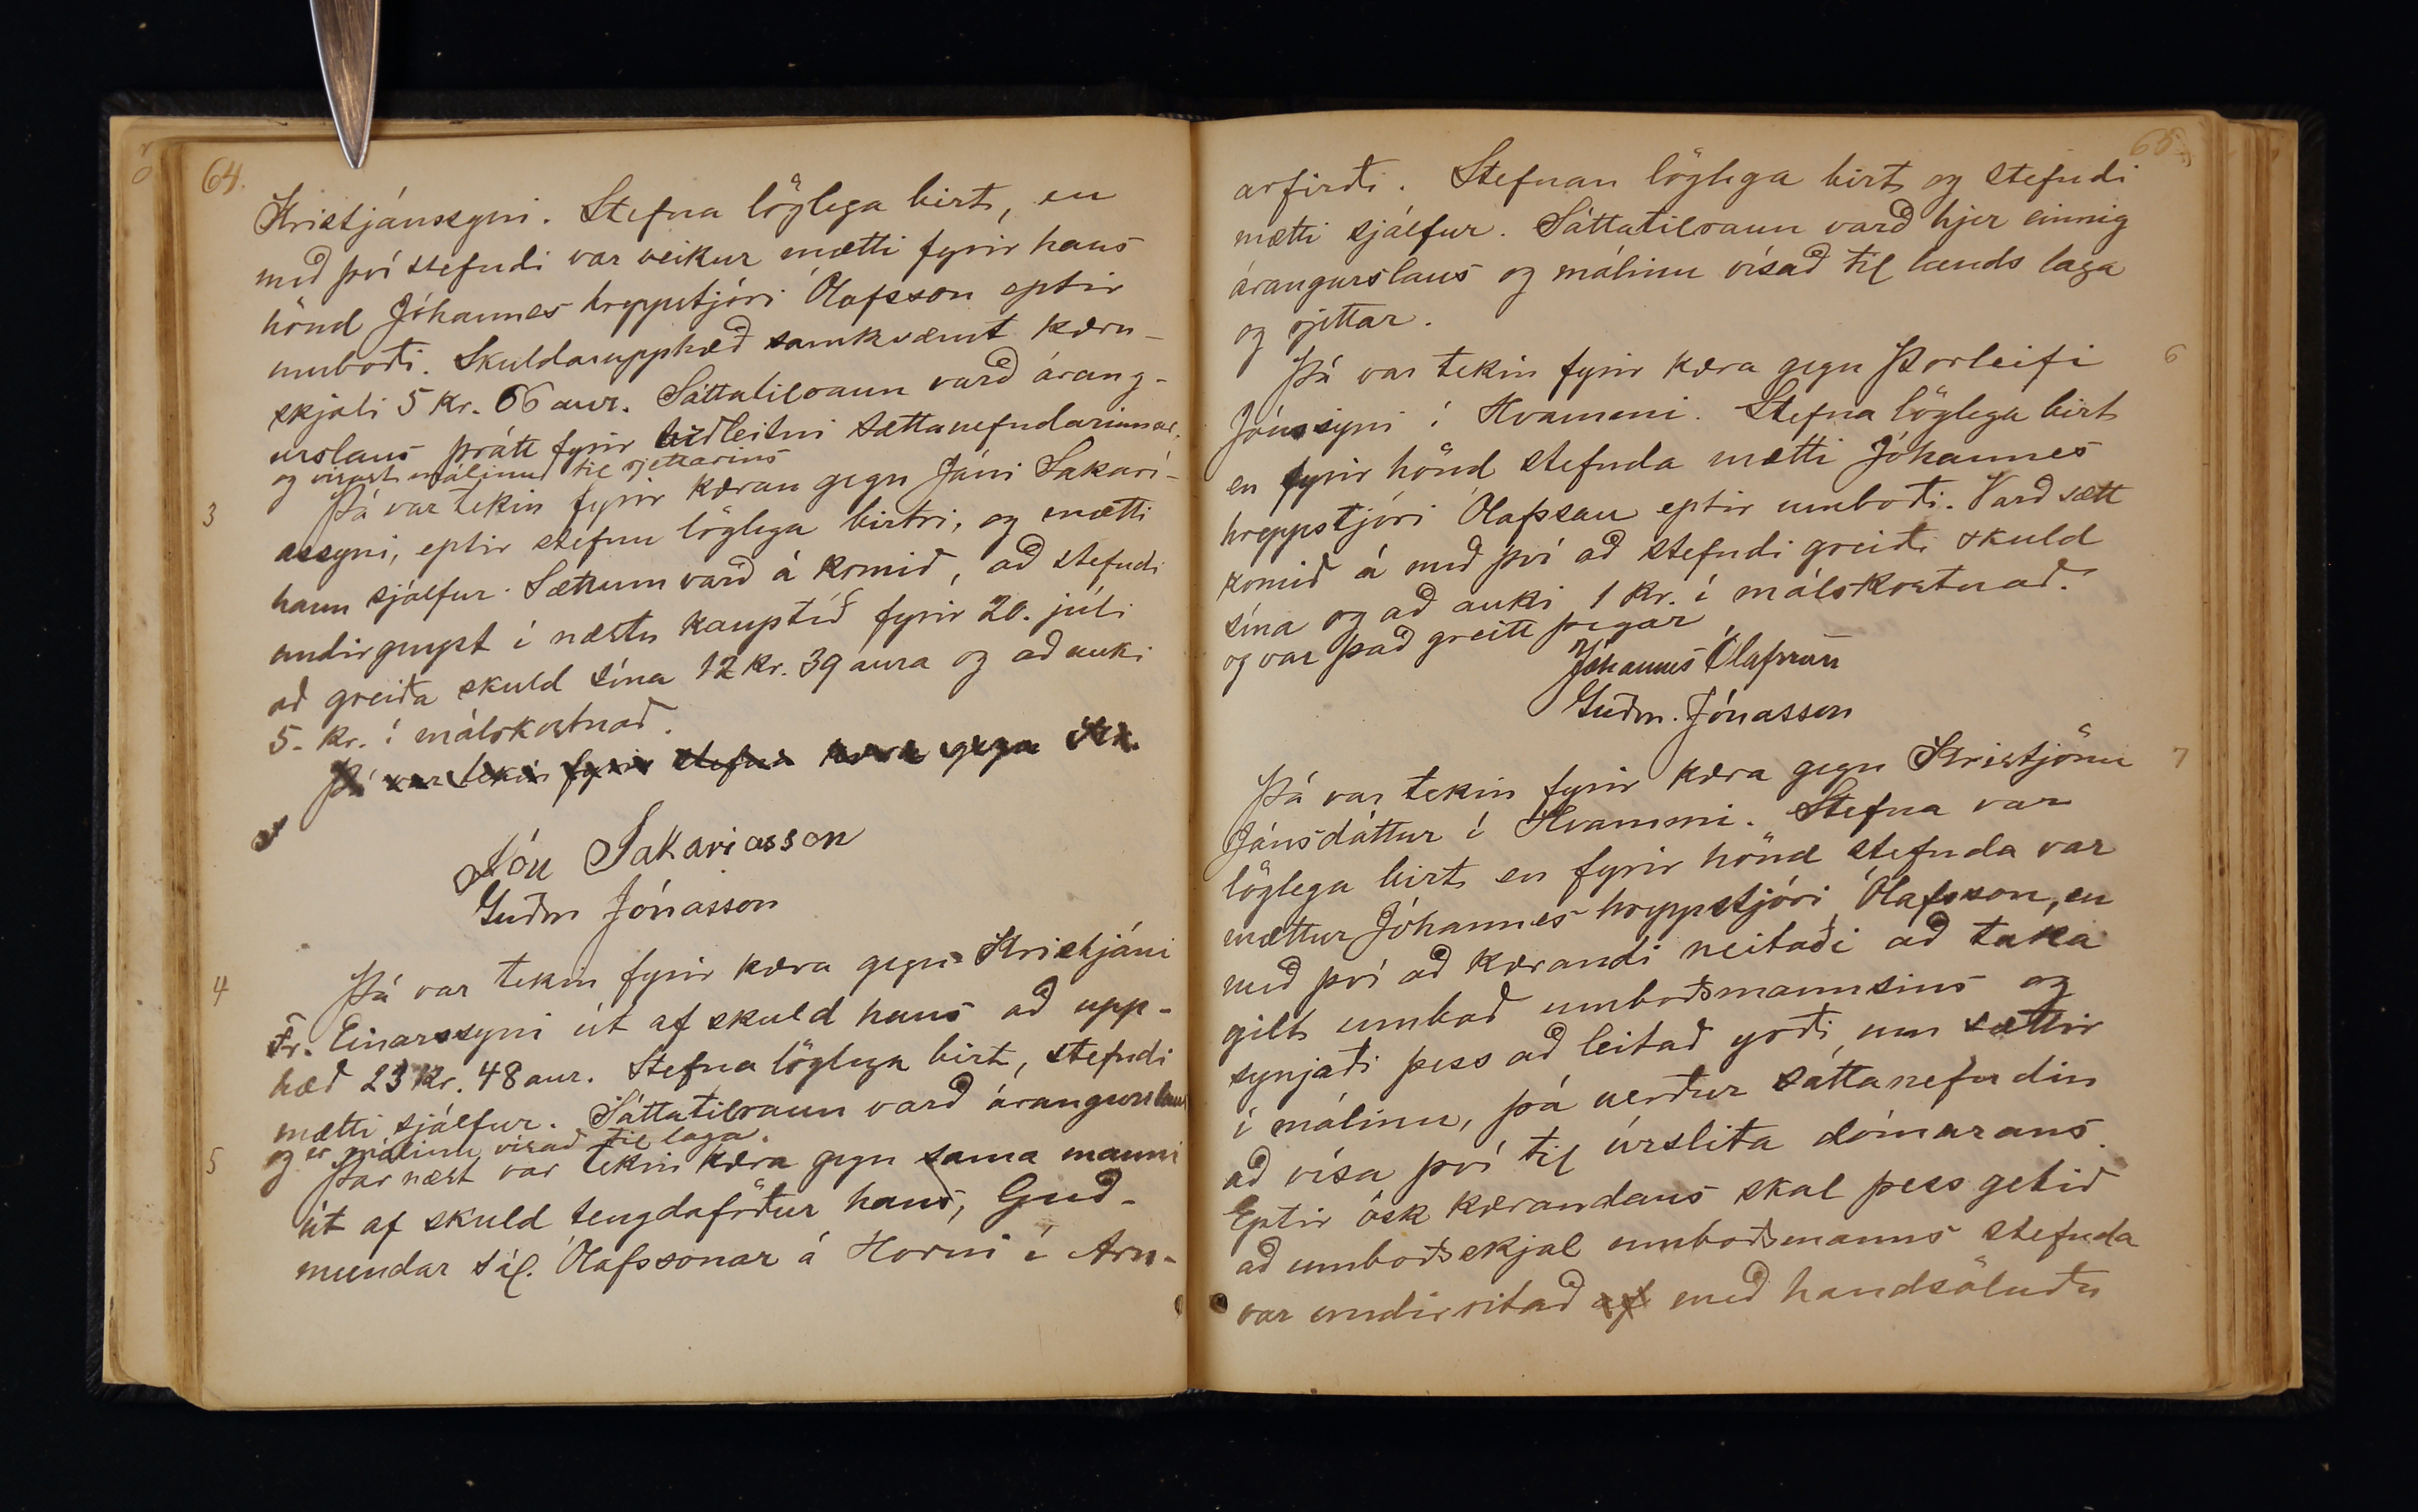 64.
Kristjánssyni. Stefna löglega birt, en
með því stefndi var veikur mætti fyrir hans
hönd Jóhannes hreppstjóri Ólafsson eptir
umboði. Skuldarupphæð samkvæmt kæru-
skjali 5 kr. 66 aur. Sáttatilraun varð árang-
urslaus þrátt fyrir viðleitni sættanefndarinnar,
og vísast málinu til rjettarins
3
Þá var tekin fyrir kæran gegn Jóni Sakarí-
assyni, eptir stefnu löglega birtri, og mætti
hann sjálfur. Sættum varð á komið, að stefndi
undirgengst í næstu kauptíð fyrir 20. júli
að greiða skuld sína 12 kr. 39 aura og að auki
5- kr. í málskostnað.
Þá var tekin fyrir stefna kæra gegn Kr.
Jón Sakaríasson
Guðm Jónasson
4
Þá var tekin fyrir kæra gegn Kristjáni
Fr. Einarssyni út af skuld hans að upp-
hæð 23 kr. 48 aur. Stefna löglega birt, stefndi
mætti sjálfur. Sáttatilraun varð árangurslaus
og er málinu vísað til laga.
5
Þar næst var tekin kæra gegn sama manni
út af skuld tengdaföður hans, Guð-
mundar sál. Ólafssonar á Horni í Arn-
65
arfirði. Stefnan löglega birt og stefndi
mætti sjálfur. Sáttatilraun varð hjer einnig
árangurslaus og málinu vísað til lands laga
og rjettar.
6
Þá var tekin fyrir kæra gegn Þorleifi
Jónssyni í Hvammi. Stefna löglega birt
en fyrir hönd stefnda mætti Jóhannes
hreppstjóri Ólafsson eptir umboði. Varð sætt
komið á með því að stefndi greiði skuld
sína og að auki 1 kr. í málskostnað.
og var það greitt þegar
Jóhannes Ólafsson
Guðm. Jónasson
7
Þá var tekin fyrir kæra gegn Kristjönu
Jónsdóttur í Hvammi. Stefna var
löglega birt en fyrir hönd stefnda var
mættur Jóhannes hreppstjóri Ólafsson, en
með því að kærandi neitaði að taka
gilt umboð umboðsmannsins og
synjaði þess að leitað yrði um sættir
í málinu, þá verður sáttanefndin
að vísa því til úrslita dómarans.
Eptir ósk kærandans skal þess getið
að umboðsskjal umboðsmanns stefnda
var undirritað af með handsöluðu